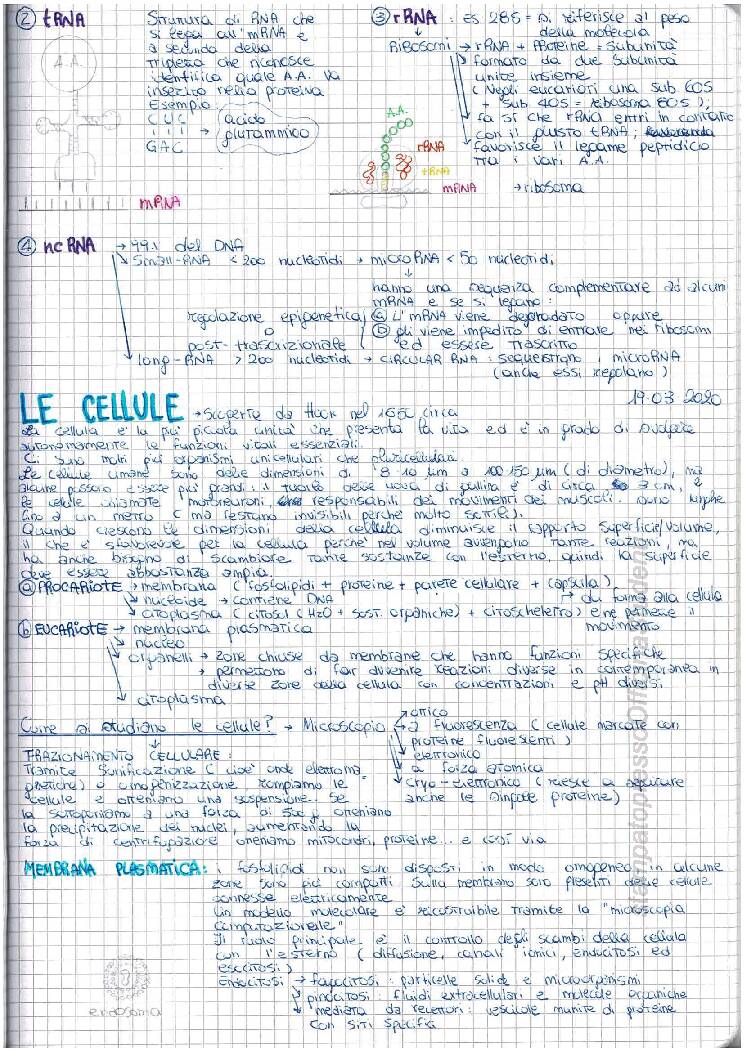 ② tRNA
Struttura di RNA che
si lega all'mRNA e
a seconda della
tripletta che riconosce
identifica quale A.A. va
inserito nella proteina
Esempio:
CUC
GAG
→ acido
glutammico
A.A.
mRNA
③ rRNA : es 28S = si riferisce al peso
della molecola
Ribosomi → rRNA + Proteine = subunità
formato da due subunità
unite insieme
(Negli eucarioti una sub 60S
+ sub 40S = ribosoma 80S);
fa sì che rRNA entri in contatto
con il giusto tRNA;
favorisce il legame peptidico
tra i vari A.A.
A.A.
rRNA
tRNA
mRNA
→ ribosoma
④ ncRNA → 99% del DNA
Small-RNA < 200 nucleotidi → microRNA < 50 nucleotidi
hanno una sequenza complementare ad alcuni
mRNA e se si legano:
regolazione epigenetica
o
post-trascrizionale
ⓐ L'mRNA viene degradato oppure
ⓑ gli viene impedito di entrare nei ribosomi
ed essere trascritto
long-RNA > 200 nucleotidi → CIRCULAR RNA: sequestrano i microRNA
(anche essi regolano)
19.03 2020
LE CELLULE → scoperte da Hook nel 1650 circa
La cellula è la più piccola unità che presenta la vita ed è in grado di svolgere
autonomamente le funzioni vitali essenziali.
Ci sono molti più organismi unicellulari che pluricellulari
Le cellule umane sono delle dimensioni di 8 10 µm a 100 150 µm (di diametro), ma
alcune possono essere più grandi: il tuorlo delle uova di gallina è di circa 3 cm, e
le cellule chiamate motoneuroni, responsabili dei movimenti dei muscoli, sono lunghe
fino a un metro (ma restano invisibili perché molto sottili).
Quando crescono le dimensioni della cellula diminuisce il rapporto superficie/volume,
il che è sfavorevole per la cellula perché nel volume avvengono tante reazioni, ma
ha anche bisogno di scambiare tante sostanze con l'esterno, quindi la superficie
deve essere abbastanza ampia.
ⓐ PROCARIOTE → membrana (fosfolipidi + proteine + parete cellulare + capsula)
nucleoide → contiene DNA
citoplasma (citosol (H2O + sost. organiche) + citoscheletro)
→ dà forma alla cellula
e ne permette il
movimento
ⓑ EUCARIOTE → membrana plasmatica
nucleo
organelli → zone chiuse da membrane che hanno funzioni specifiche
→ permettono di far avvenire reazioni diverse in contemporanea in
diverse zone della cellula con concentrazioni e pH diversi
citoplasma
Come si studiano le cellule? → Microscopio
ottico
a fluorescenza (cellule marcate con
proteine fluorescenti)
elettronico
a forza atomica
cryo-elettronico (riesce a
anche le singole proteine)
FRAZIONAMENTO CELLULARE:
Tramite sonificazione (cioè onde elettroma
gnetiche) o omogenizzazione rompiamo le
cellule e otteniamo una sospensione. Se
la sottoponiamo a una forza di otteniamo
la precipitazione dei nuclei, aumentando la
forza di centrifugazione otteniamo mitocondri, proteine... e così via
MEMBRANA PLASMATICA: i fosfolipidi non sono disposti in modo omogeneo in alcune
zone sono più compatti. Sulla membrana sono presenti delle cellule
connesse elettricamente
Un modello molecolare è ricostruibile tramite la "microscopia
computazionale"
Il ruolo principale è il controllo degli scambi della cellula
con l'esterno (diffusione, canali ionici, endocitosi ed
esocitosi)
Endocitosi → fagocitosi: particelle solide e microorganismi
pinocitosi: fluidi extracellulari e molecole organiche
mediata da recettori: vescicole munite di proteine
con siti specifici
endosoma